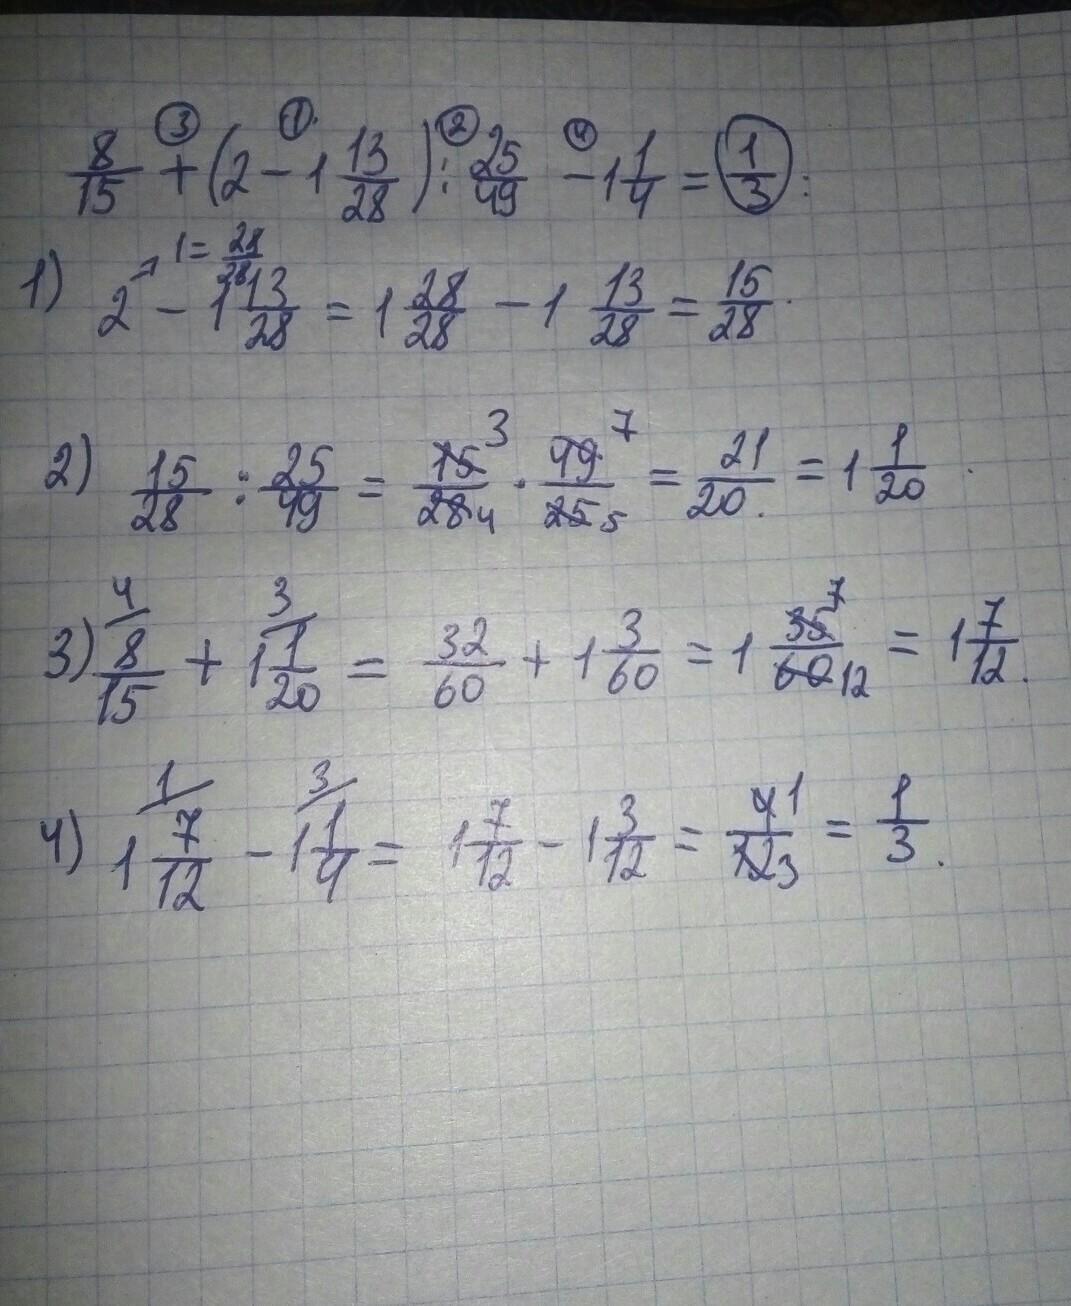 8/15 + (2 - 1 13/28) : 25/49 - 1 1/4 = 1/3 .
③ ① ② ④
1 = 28/28
1) 2 - 1 13/28 = 1 28/28 - 1 13/28 = 15/28 .
2) 15/28 : 25/49 = 15 3/28 4 · 49 7/25 5 = 21/20 . = 1 1/20 .
3) 4/ 8/15 + 3/ 1 1/20 = 32/60 + 1 3/60 = 1 35 7/60 12 = 1 7/12 .
4) 1/ 1 7/12 - 3/ 1 1/4 = 1 7/12 - 1 3/12 = 4 1/12 3 = 1/3 .